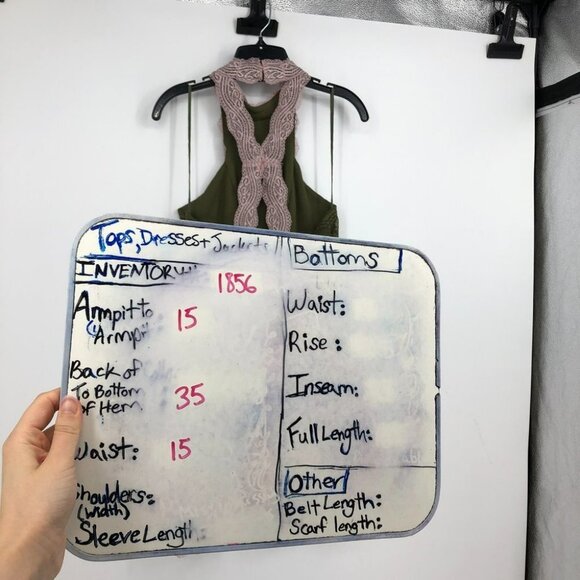 Tops, Dresses + Jackets
INVENTORY
1856
Armpit to
Armpit
15
Back of
To Bottom
of Hem
35
Waist: 15
Shoulders:
(width)
Sleeve Length:
Bottoms
Waist:
Rise:
Inseam:
Full Length:
Other
Belt Length:
Scarf length: